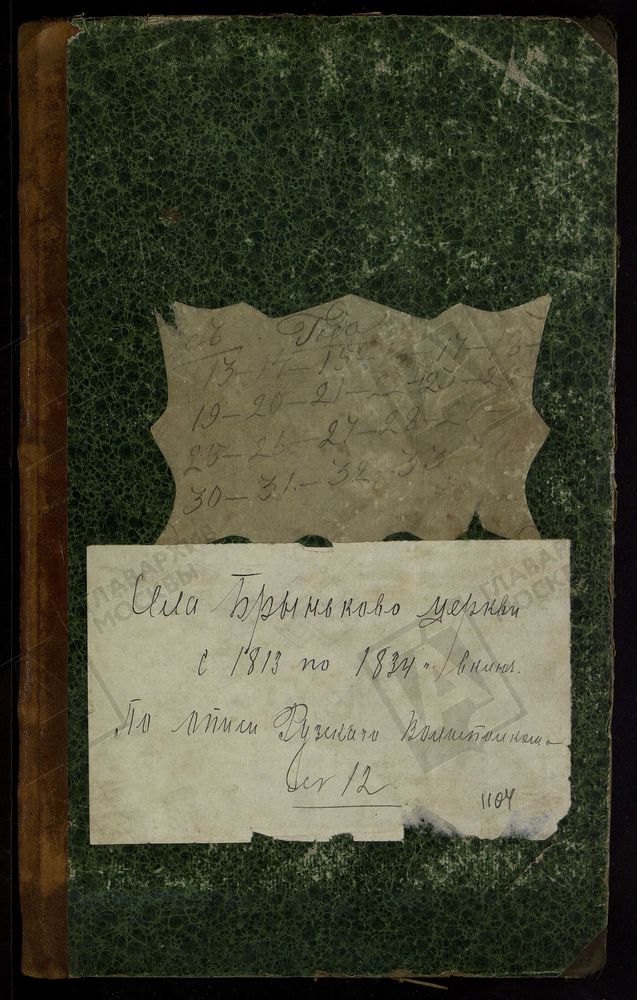 съ Года
13–14–15– –17–18–
19–20–21– –23–2
25–26–27–28–2
30–31–32–33
Села Брыньково церкви
с 1813 по 1834 " включ.
По описи Рузскаго Волисполкома
№ 12
1104
ГЛАВАРХИВ
МОСКВЫ